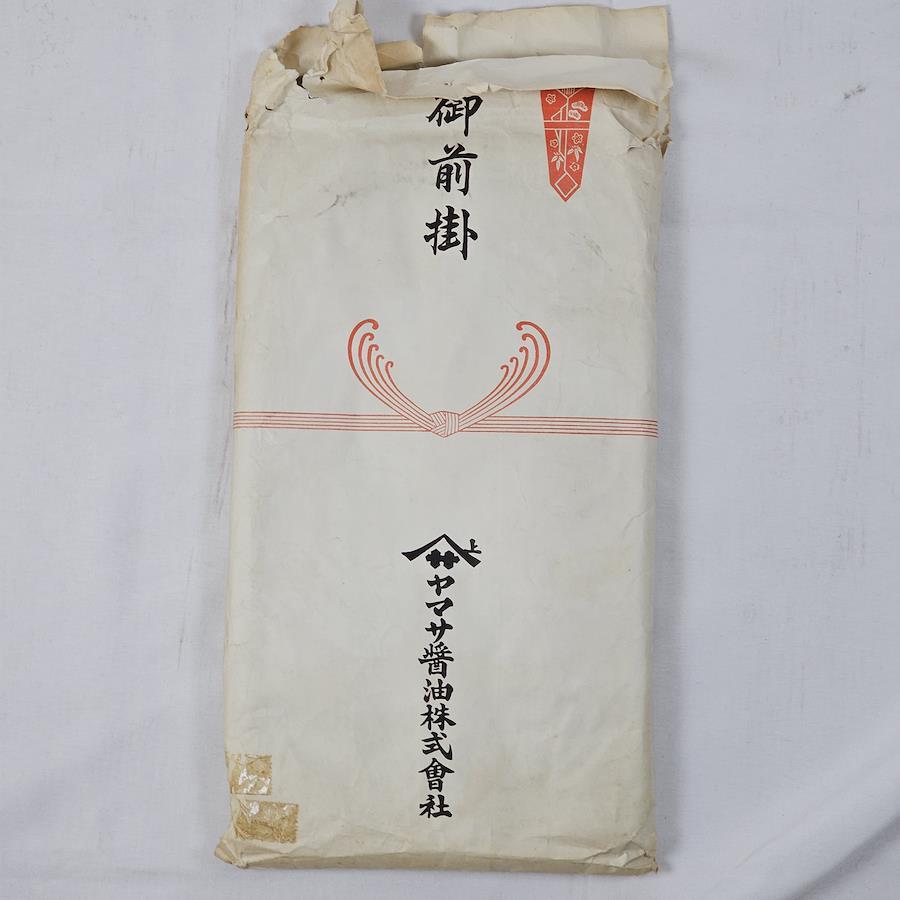 御前掛
上
ヤマサ醤油株式會社